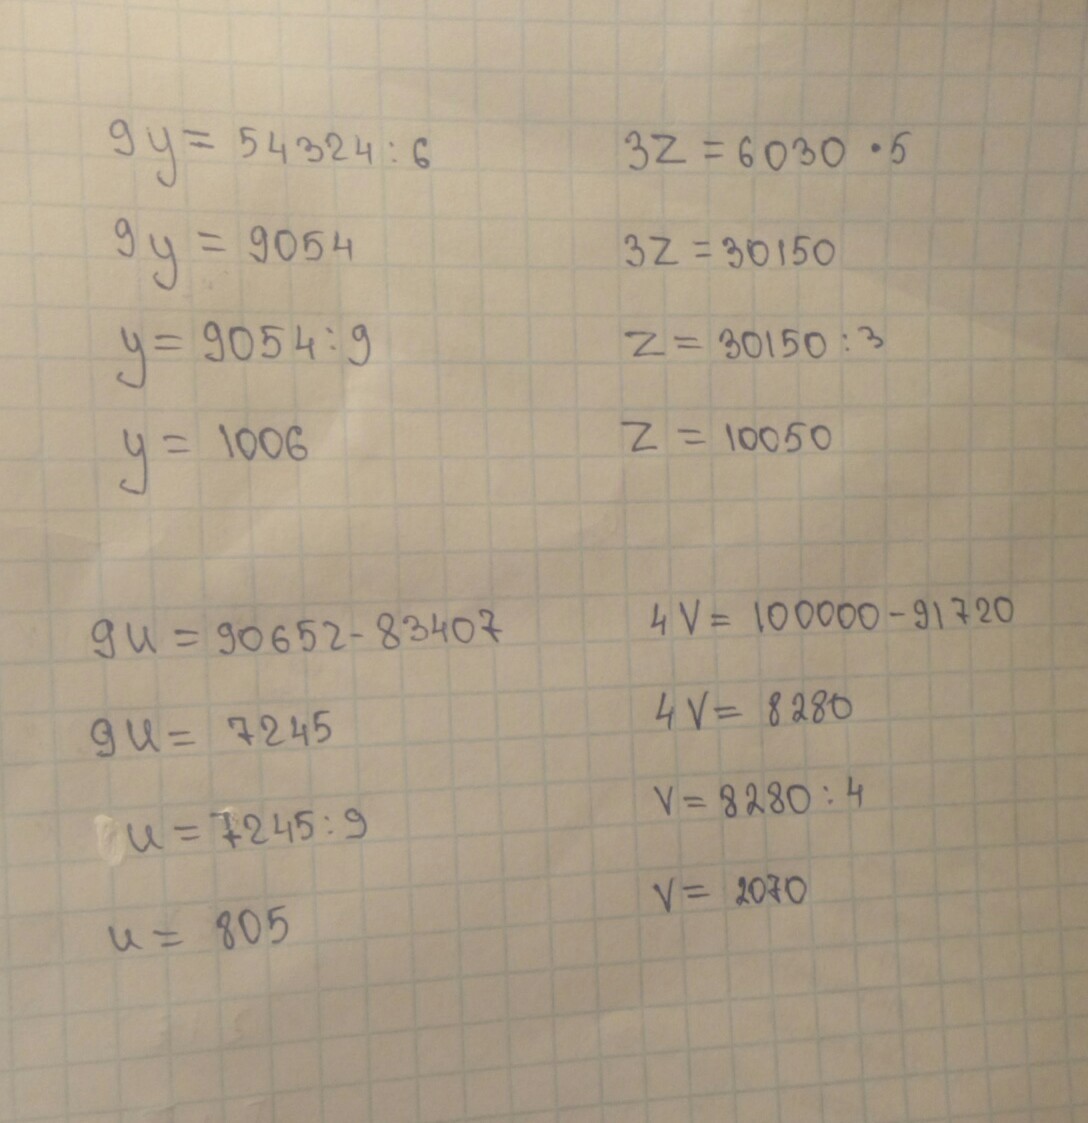 9y = 54324 : 6
9y = 9054
y = 9054 : 9
y = 1006
3Z = 6030 · 5
3Z = 30150
Z = 30150 : 3
Z = 10050
9u = 90652 - 83407
9u = 7245
u = 7245 : 9
u = 805
4V = 100000 - 91720
4V = 8280
V = 8280 : 4
V = 2070